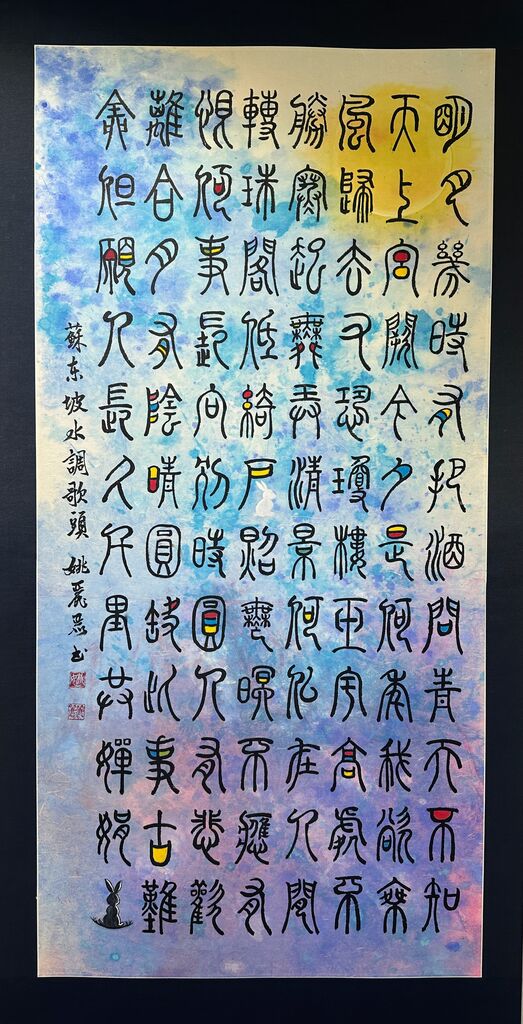 明月幾時有把酒問青天不知
天上宮闕今夕是何年我欲乘
風歸去又恐瓊樓玉宇高處不
勝寒起舞弄清景何似在人間
轉珠閣低綺戶照無眠不應有
恨何事長向別時圓人有悲歡
離合月有陰晴圓缺此事古難
全但願人長久千里共嬋娟
蘇东坡水調歌頭 姚麗书